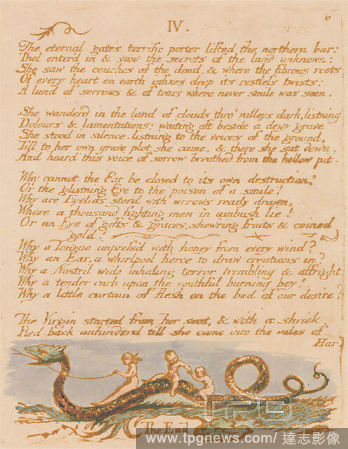 IV.
6
The eternal gates terrific porter lifted the northern bar:
Thel enter'd in & saw the secrets of the land unknown:
She saw the couches of the dead, & where the fibrous roots
Of every heart on earth infixes deep its restless twists:
A land of sorrows & of tears where never smile was seen.
She wanderd in the land of clouds thro' valleys dark, listning
Dolours & lamentations: waiting oft beside a dewy grave
She stood in silence. listning to the voices of the ground,
Till to her own grave plot she came, & there she sat down.
And heard this voice of sorrow breathed from the hollow pit.
Why cannot the Ear be closed to its own destruction?
Or the glistning Eye to the poison of a smile!
Why are Eyelids stord with arrows ready drawn,
Where a thousand fighting men in ambush lie?
Or an Eye of gifts & graces, show'ring fruits & coined
gold!
Why a Tongue impress'd with honey from every wind?
Why an Ear, a whirlpool fierce to draw creations in?
Why a Nostril wide inhaling terror trembling & affright
Why a tender curb upon the youthful burning boy!
Why a little curtain of flesh on the bed of our desire?
The Virgin started from her seat, & with a shriek.
Fled back unhinderd till she came into the vales of
Har
The End
TPG
www.tpgnews.com / 達志影像